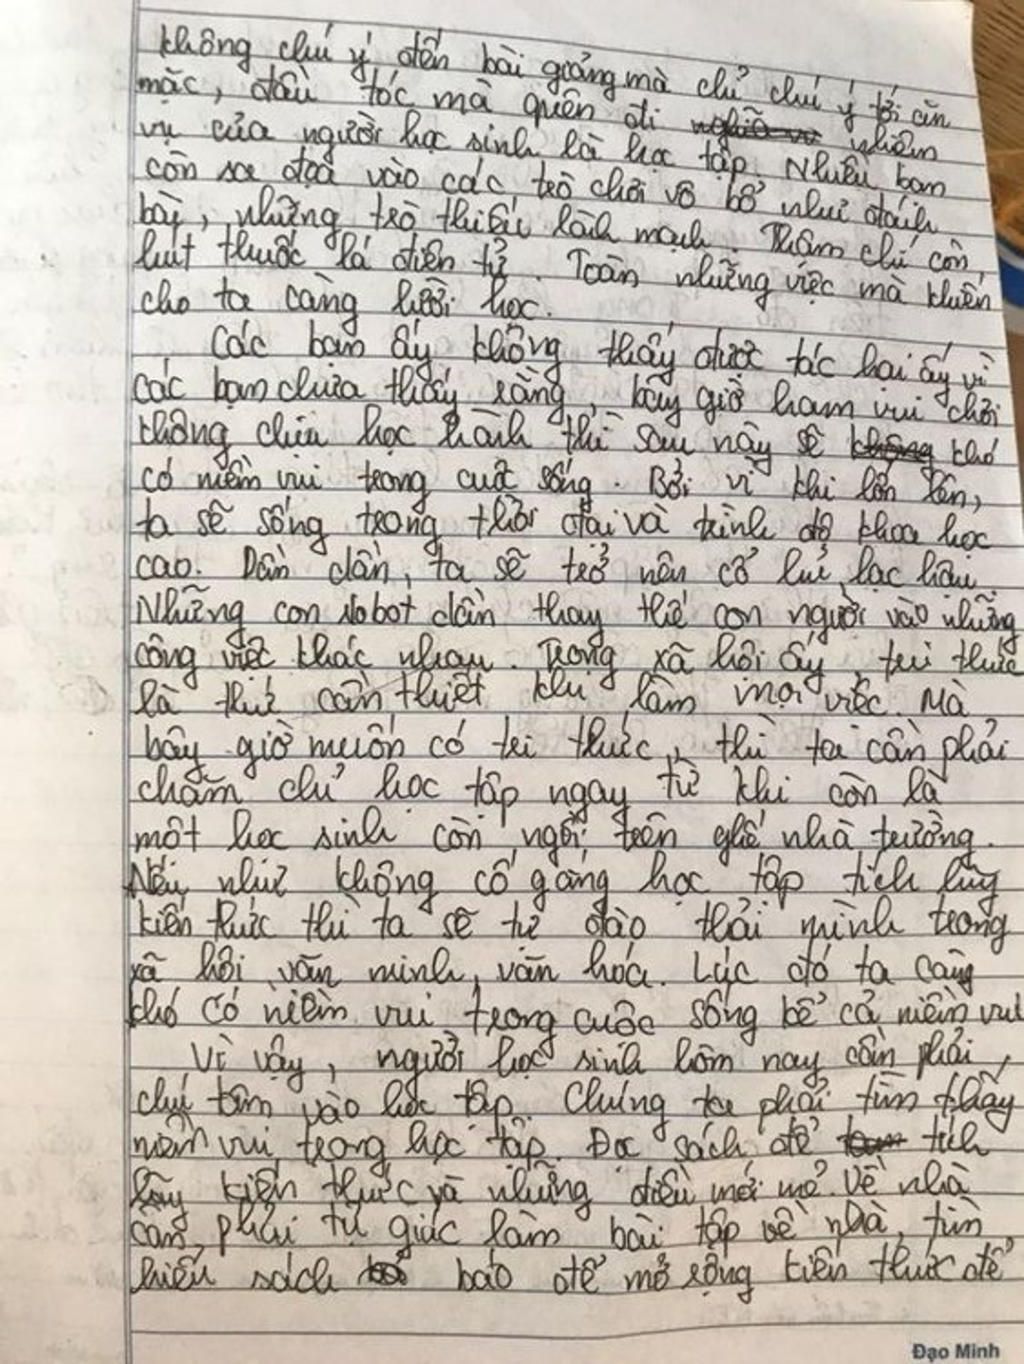 không chú ý đến bài giảng mà chỉ chú ý tới ăn
mặc, đầu tóc mà quên đi nhiệm
vụ của người học sinh là học tập. Nhiều bạn
còn sa đọa vào các trò chơi vô bổ như đánh
bài, những trò thiếu lành mạnh. Thậm chí còn
hút thuốc lá điện tử. Toàn những việc mà khiến
cho ta càng lười học.
Các bạn ấy không thấy được tác hại ấy vì
các bạn chưa thấy rằng, bây giờ ham vui chơi
không chịu học hành thì sau này sẽ không khó
có niềm vui trong cuộc sống. Bởi vì khi lớn lên,
ta sẽ sống trong thời đại và trình độ khoa học
cao. Dần dần, ta sẽ trở nên cổ hủ, lạc hậu.
Những con robot dần thay thế con người vào những
công việc khác nhau. Trong xã hội ấy tri thức
là thứ cần thiết khi làm mọi việc. Mà
bây giờ muốn có tri thức, thì ta cần phải
chăm chỉ học tập ngay từ khi còn là
một học sinh còn ngồi trên ghế nhà trường.
Nếu như không cố gắng học tập tích lũy
kiến thức thì ta sẽ tự đào thải mình trong
xã hội văn minh, văn hóa. Lúc đó ta càng
khó có niềm vui trong cuộc sống kể cả niềm vui
Vì vậy, người học sinh hôm nay cần phải
chú tâm vào học tập. Chúng ta phải tìm thấy
niềm vui trong học tập. Đọc sách để tích
lũy kiến thức và những điều mới mẻ. Về nhà
cần phải tự giác làm bài tập về nhà, tìm
hiểu sách báo để mở rộng kiến thức để
Đạo Minh